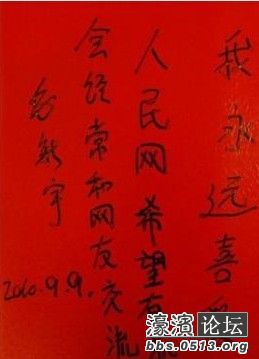 我永远喜
人民网希望有
会经常和网友交流
毛新宇
2010.9.9.
濠濱论坛
bbs.0513.org